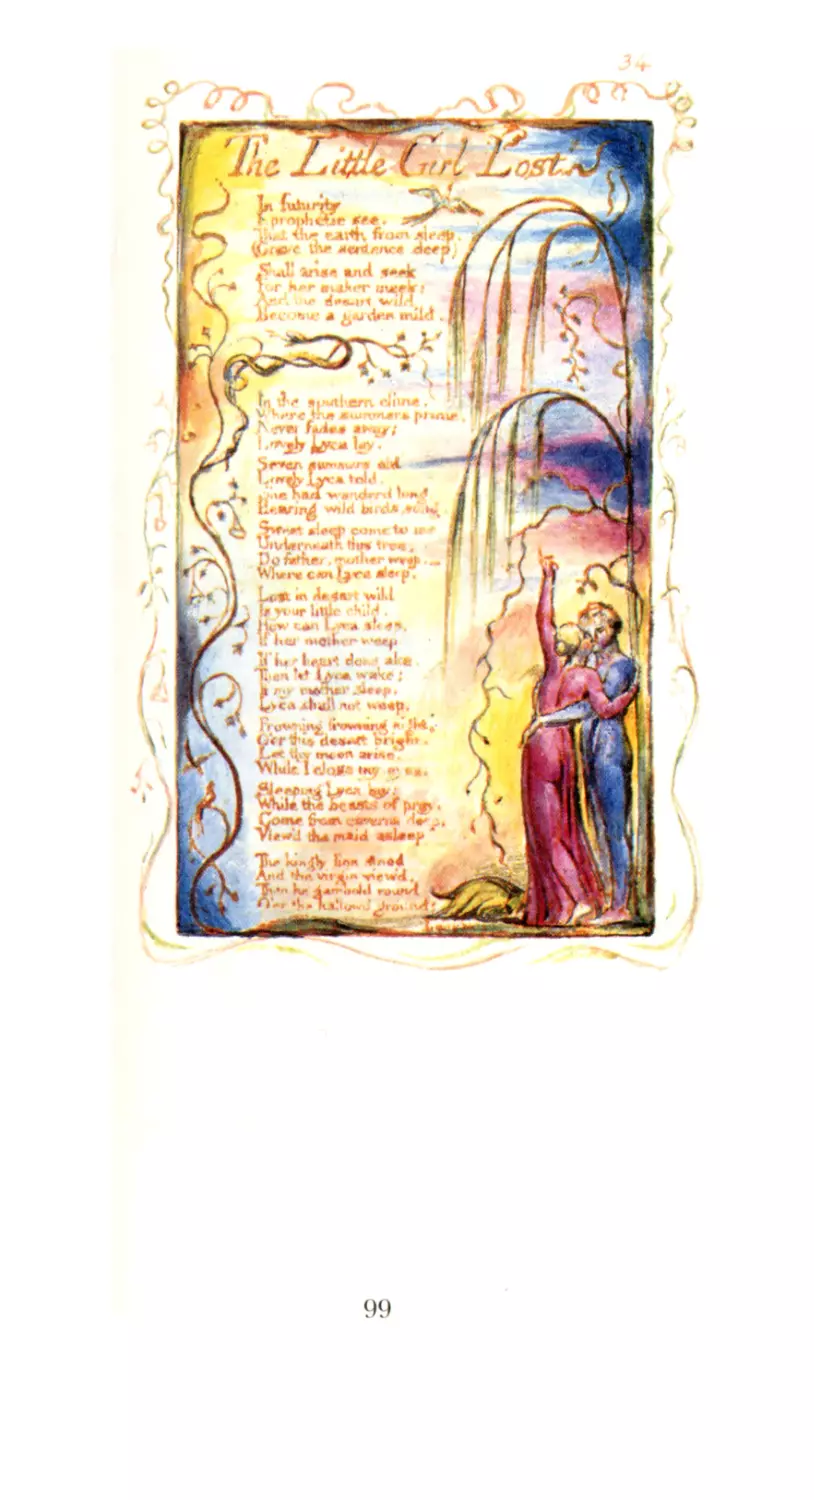 34
The Little Girl Lost
In futurity
I prophetic see,
That the earth from sleep,
(Grave the sentence deep)
Shall arise and seek
For her maker meek:
And the desart wild
Become a garden mild.
In the southern clime,
Where the summers prime,
Never fades away;
Lovely Lyca lay.
Seven summers old
Lovely Lyca told,
She had wanderd long,
Hearing wild birds song.
Sweet sleep come to me
Underneath this tree,
Do father, mother weep,
Where can Lyca sleep.
Lost in desart wild
Is your little child.
How can Lyca sleep,
If her mother weep
If her heart does ake,
Then let Lyca wake;
If my mother sleep,
Lyca shall not weep.
Frowning frowning night,
O'er this desart bright,
Let thy moon arise,
While I close my eyes.
Sleeping Lyca lay;
While the beasts of prey,
Come from caverns deep,
View'd the maid asleep
The kingly lion stood
And the virgin view'd,
Then he gambold round
O'er the hallowd ground;
99